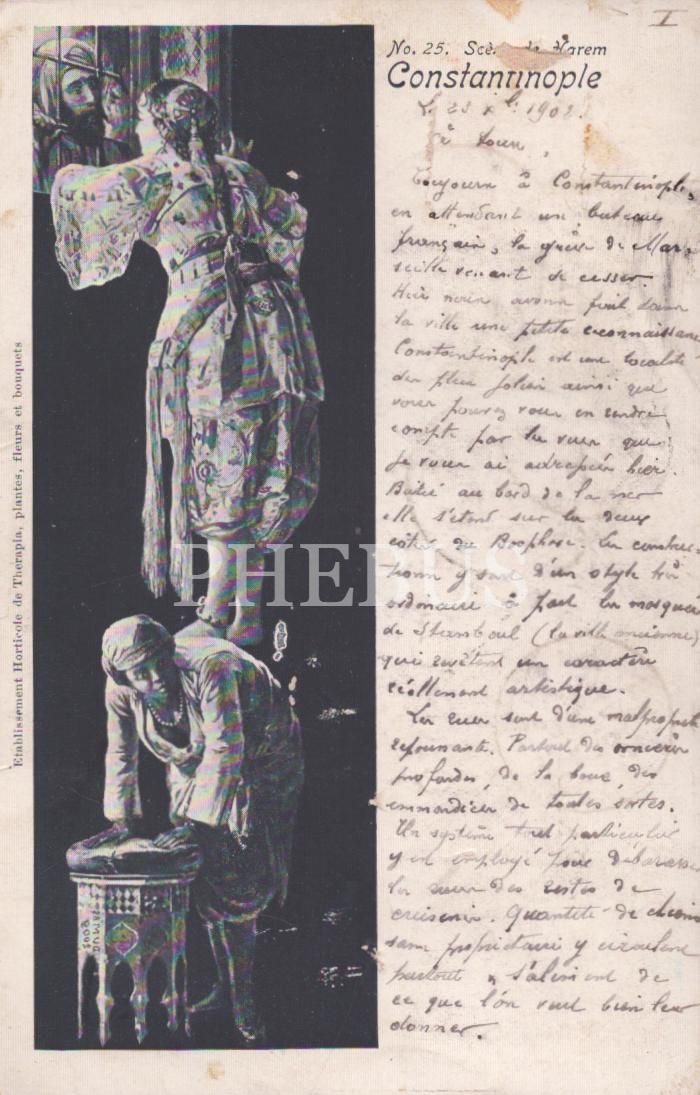 I
No. 25. Scè de Harem
Constantinople
Le 23 1902.
Toujours à Constantinople,
en attendant un bateau
français, la grève de Mar-
seille venant de cesser.
Hier nous avons fait dans
la ville une petite connaissance
Constantinople est une localité
des plus jolies ainsi que
vous pouvez vous en rendre
compte par les vues que
je vous ai adressées hier.
Batie au bord de la mer
elle s'étend sur les deux
côtés du Bosphore. Les construc-
tions y sont d'un style très
ordinaire à part les mosquées
de Stamboul (la ville ancienne)
qui revêtent un caractère
réellement artistique.
Les rues sont d'une malpropreté
repoussante. Partout des ornières
profondes, de la boue, des
immondices de toutes sortes.
Un système tout particulier
y est employé pour débarasser
les rues des restes de
cuisines. Quantité de chiens
sans propriétaire y circulent
partout s'alimt de
ce que l'on veut bien leur
donner.
Etablissement Horticole de Therapia, plantes, fleurs et bouquets
PHEBUS